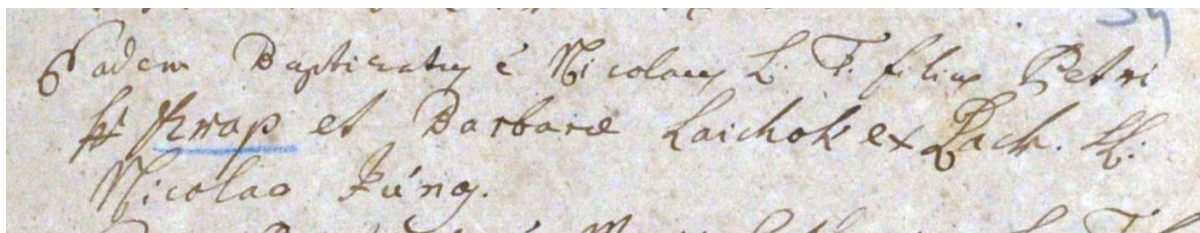 Eadem Baptizatus è Nicolaus L. T. filius Petri
Krap et Barbaræ Laichok ex Pach. LL.
Nicolao Júng.